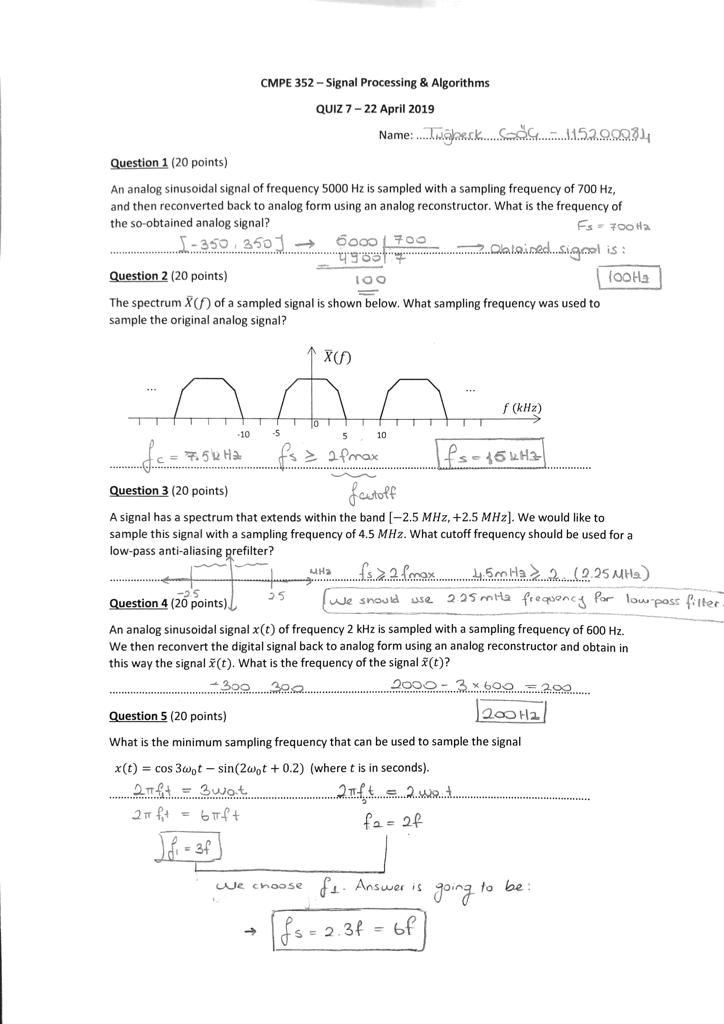 CMPE 352 – Signal Processing & Algorithms
QUIZ 7 – 22 April 2019
Name: ....Tuğberk......GÖÇ...-...115200084
Question 1 (20 points)
An analog sinusoidal signal of frequency 5000 Hz is sampled with a sampling frequency of 700 Hz,
and then reconverted back to analog form using an analog reconstructor. What is the frequency of
the so-obtained analog signal?
Fs = 700Hz
[-350, 350] → 5000 | 700
- 4900 | 7
100
→ Obtained signal is :
100Hz
Question 2 (20 points)
The spectrum X̄(f) of a sampled signal is shown below. What sampling frequency was used to
sample the original analog signal?
X̄(f)
... ...
f (kHz)
-10 -5 0 5 10
fc = 7.5kHz fs ≥ 2fmax fs = 15kHz
fcutoff
Question 3 (20 points)
A signal has a spectrum that extends within the band [−2.5 MHz, +2.5 MHz]. We would like to
sample this signal with a sampling frequency of 4.5 MHz. What cutoff frequency should be used for a
low-pass anti-aliasing prefilter?
MHz fs ≥ 2fmax 4.5mHz ≥ 2 (2.25MHz)
-2.5 2.5
We should use 2.25 mHz frequency for low-pass filter.
Question 4 (20 points)
An analog sinusoidal signal x(t) of frequency 2 kHz is sampled with a sampling frequency of 600 Hz.
We then reconvert the digital signal back to analog form using an analog reconstructor and obtain in
this way the signal x̃(t). What is the frequency of the signal x̃(t)?
-300 300 2000 - 3 x 600 = 200
200Hz
Question 5 (20 points)
What is the minimum sampling frequency that can be used to sample the signal
x(t) = cos 3ω₀t − sin(2ω₀t + 0.2) (where t is in seconds).
2πf₁t = 3w₀.t 2πf₂t = 2w₀.t
2πf₁t = 6πft f₂ = 2f
f₁ = 3f
We choose f₁. Answer is going to be :
→ fs = 2.3f = 6f